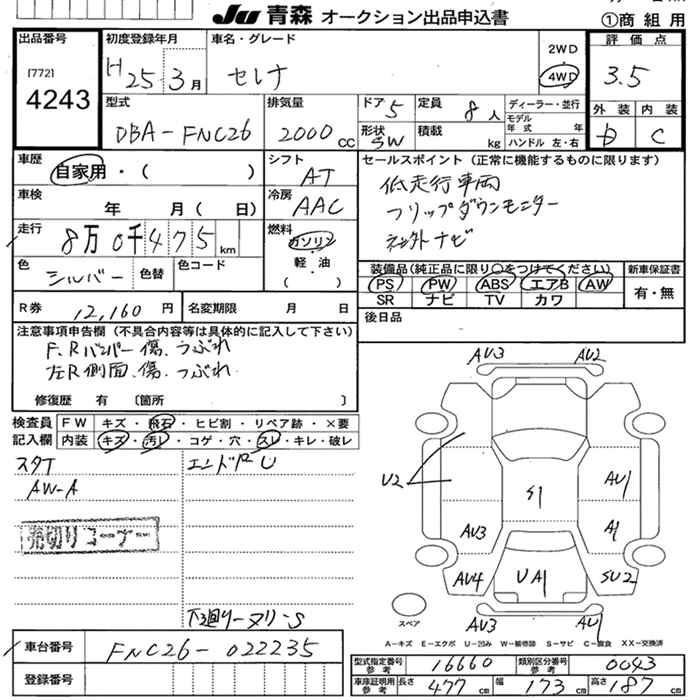 JU 青森 オークション出品申込書
①商組用
出品番号
[772]
4243
初度登録年月
H25.3月
車名・グレード
セレナ
2WD
4WD
評価点
3.5
型式
DBA-FNC26
排気量
2000cc
ドア 5
定員 8人
ディーラー・並行
形状 SW
積載 kg
モデル年式 年
ハンドル 左・右
外装
内装
D
C
車歴
自家用・( )
シフト
AT
車検
年 月( 日)
冷房
AAC
走行
8万0千475km
燃料
ガソリン
軽・油
( )
色
シルバー
色替
色コード
セールスポイント(正常に機能するものに限ります)
低走行車両
フリップダウンモニター
社外ナビ
装備品(純正品に限り○をつけてください)
PS PW ABS エアB AW
SR ナビ TV カワ
新車保証書
有・無
R券 12,160円
名変期限 月 日
後日品
注意事項申告欄(不具合内容等は具体的に記入して下さい)
F、Rバンパー傷、つぶれ
左R側面、傷、つぶれ
修復歴 有 〔箇所 〕
検査員
記入欄
FW キズ・飛石・ヒビ割・リペア跡・×要
内装 キズ・汚レ・コゲ・穴・スレ・キレ・破レ
スタT
AW-A
売切りコーナー
下廻り
AV3
AV2
U2
S1
AU1
AV3
A1
AV4
UA1
SU2
AV3
AU1
スペア
A-キズ E-エクボ U-凹み W-補修跡 S-サビ C-腐食 XX-交換済
車台番号 FNC26-022235
登録番号
型式指定番号参考 16660
類別区分番号参考 0043
車庫証明用参考 長さ 477cm 幅 173cm 高さ 187cm